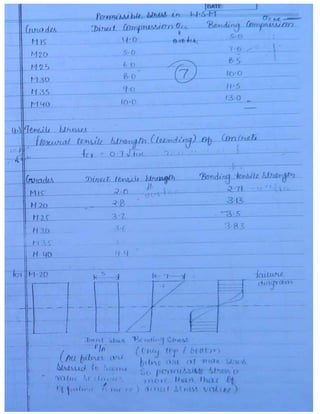 DATE
Permissible stress in W.S.M
Grades Direct Compression σcc Bending Compression σcbc
M15 4.0 5.0
M20 5.0 7.0
M25 6.0 8.5
M30 8.0 10.0
M35 9.0 11.5
M40 10.0 13.0
7
(b) Tensile Stresses
flexural tensile strength (bending) of Concrete
fcr = 0.7√fck
Grades Direct tensile strength Bending tensile strength
M15 2.0 2.71
M20 2.8 3.13
M25 3.2 3.5
M30 3.6 3.83
M35
M40 4.4
for M-20 5 7 failure
diagram
Direct stress Bending stress
P/A
(All fibres are (Only top / bottom
stressed to same fibre are at max stress
value so permissible stress is
more than that of
direct stress value)